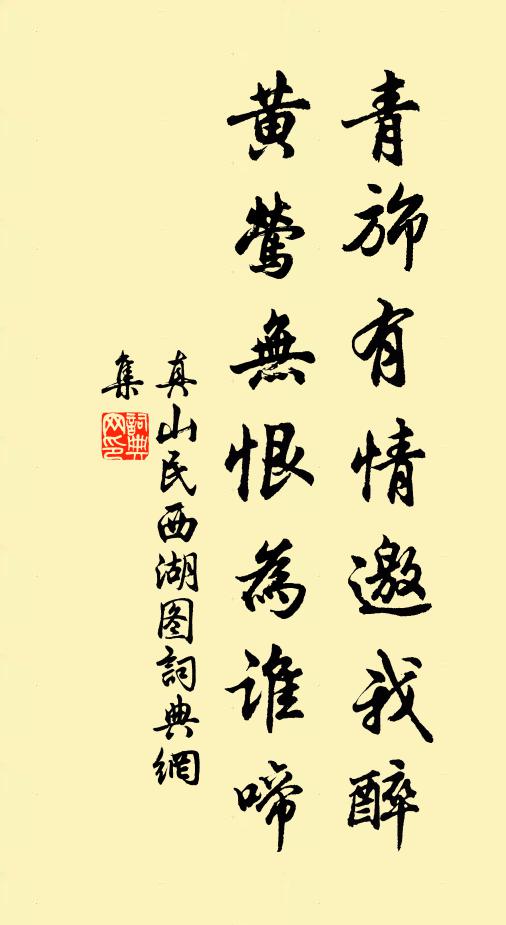 青旆有情邀我醉
黄莺無恨為誰啼
真山民西湖图詞典網
集
詞典网印